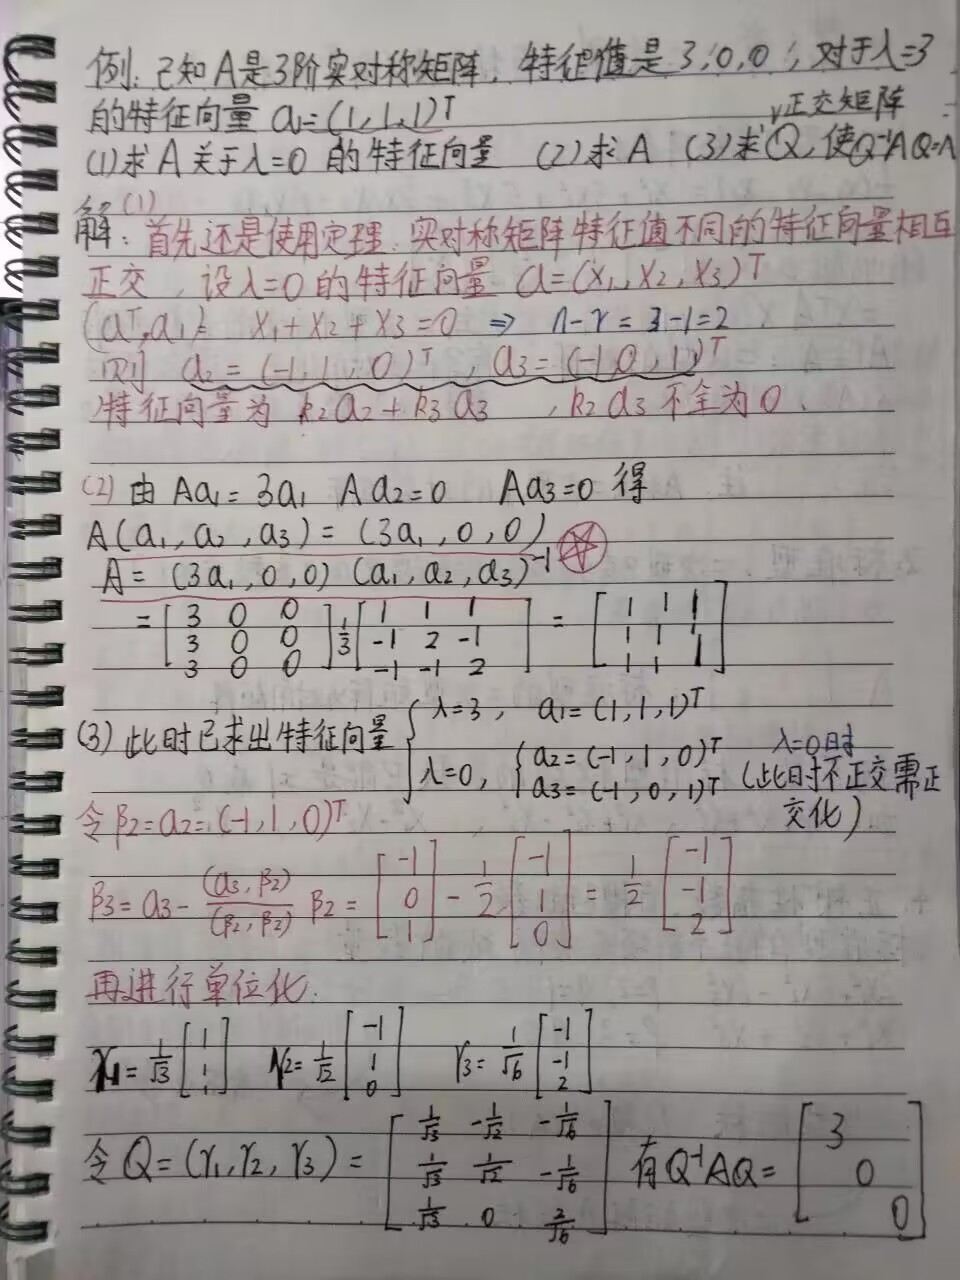 例：已知A是3阶实对称矩阵，特征值是3,0,0，对于λ=3
的特征向量 a₁=(1,1,1)ᵀ
正交矩阵
(1)求A关于λ=0的特征向量 (2)求A (3)求Q,使Q⁻¹AQ=Λ
解:(1)首先还是使用定理:实对称矩阵特征值不同的特征向量相互
正交，设λ=0的特征向量 a=(x₁,x₂,x₃)ᵀ
(aᵀ,a₁)= x₁+x₂+x₃=0 ⇒ n-r=3-1=2
则 a₂=(-1,1,0)ᵀ, a₃=(-1,0,1)ᵀ
特征向量为 k₂a₂+k₃a₃ ,k₂a₃不全为0、
(2)由Aa₁=3a₁ Aa₂=0 Aa₃=0 得
A(a₁,a₂,a₃)=(3a₁,0,0)
A=(3a₁,0,0)(a₁,a₂,a₃)⁻¹
= [3 0 0; 3 0 0; 3 0 0] 1/3 [1 1 1; -1 2 -1; -1 -1 2] = [1 1 1; 1 1 1; 1 1 1]
(3)此时已求出特征向量 { λ=3, a₁=(1,1,1)ᵀ
λ=0, { a₂=(-1,1,0)ᵀ
a₃=(-1,0,1)ᵀ
λ=0时
(此时不正交需正
交化)
令β₂=a₂=(-1,1,0)ᵀ
β₃=a₃-(a₃,β₂)/(β₂,β₂) β₂= [-1; 0; 1] - 1/2 [-1; 1; 0] = 1/2 [-1; -1; 2]
再进行单位化.
γ₁=1/√3 [1; 1; 1] γ₂=1/√2 [-1; 1; 0] γ₃=1/√6 [-1; -1; 2]
令Q=(γ₁,γ₂,γ₃)= [1/√3 -1/√2 -1/√6; 1/√3 1/√2 -1/√6; 1/√3 0 2/√6] 有Q⁻¹AQ= [3 0 0]